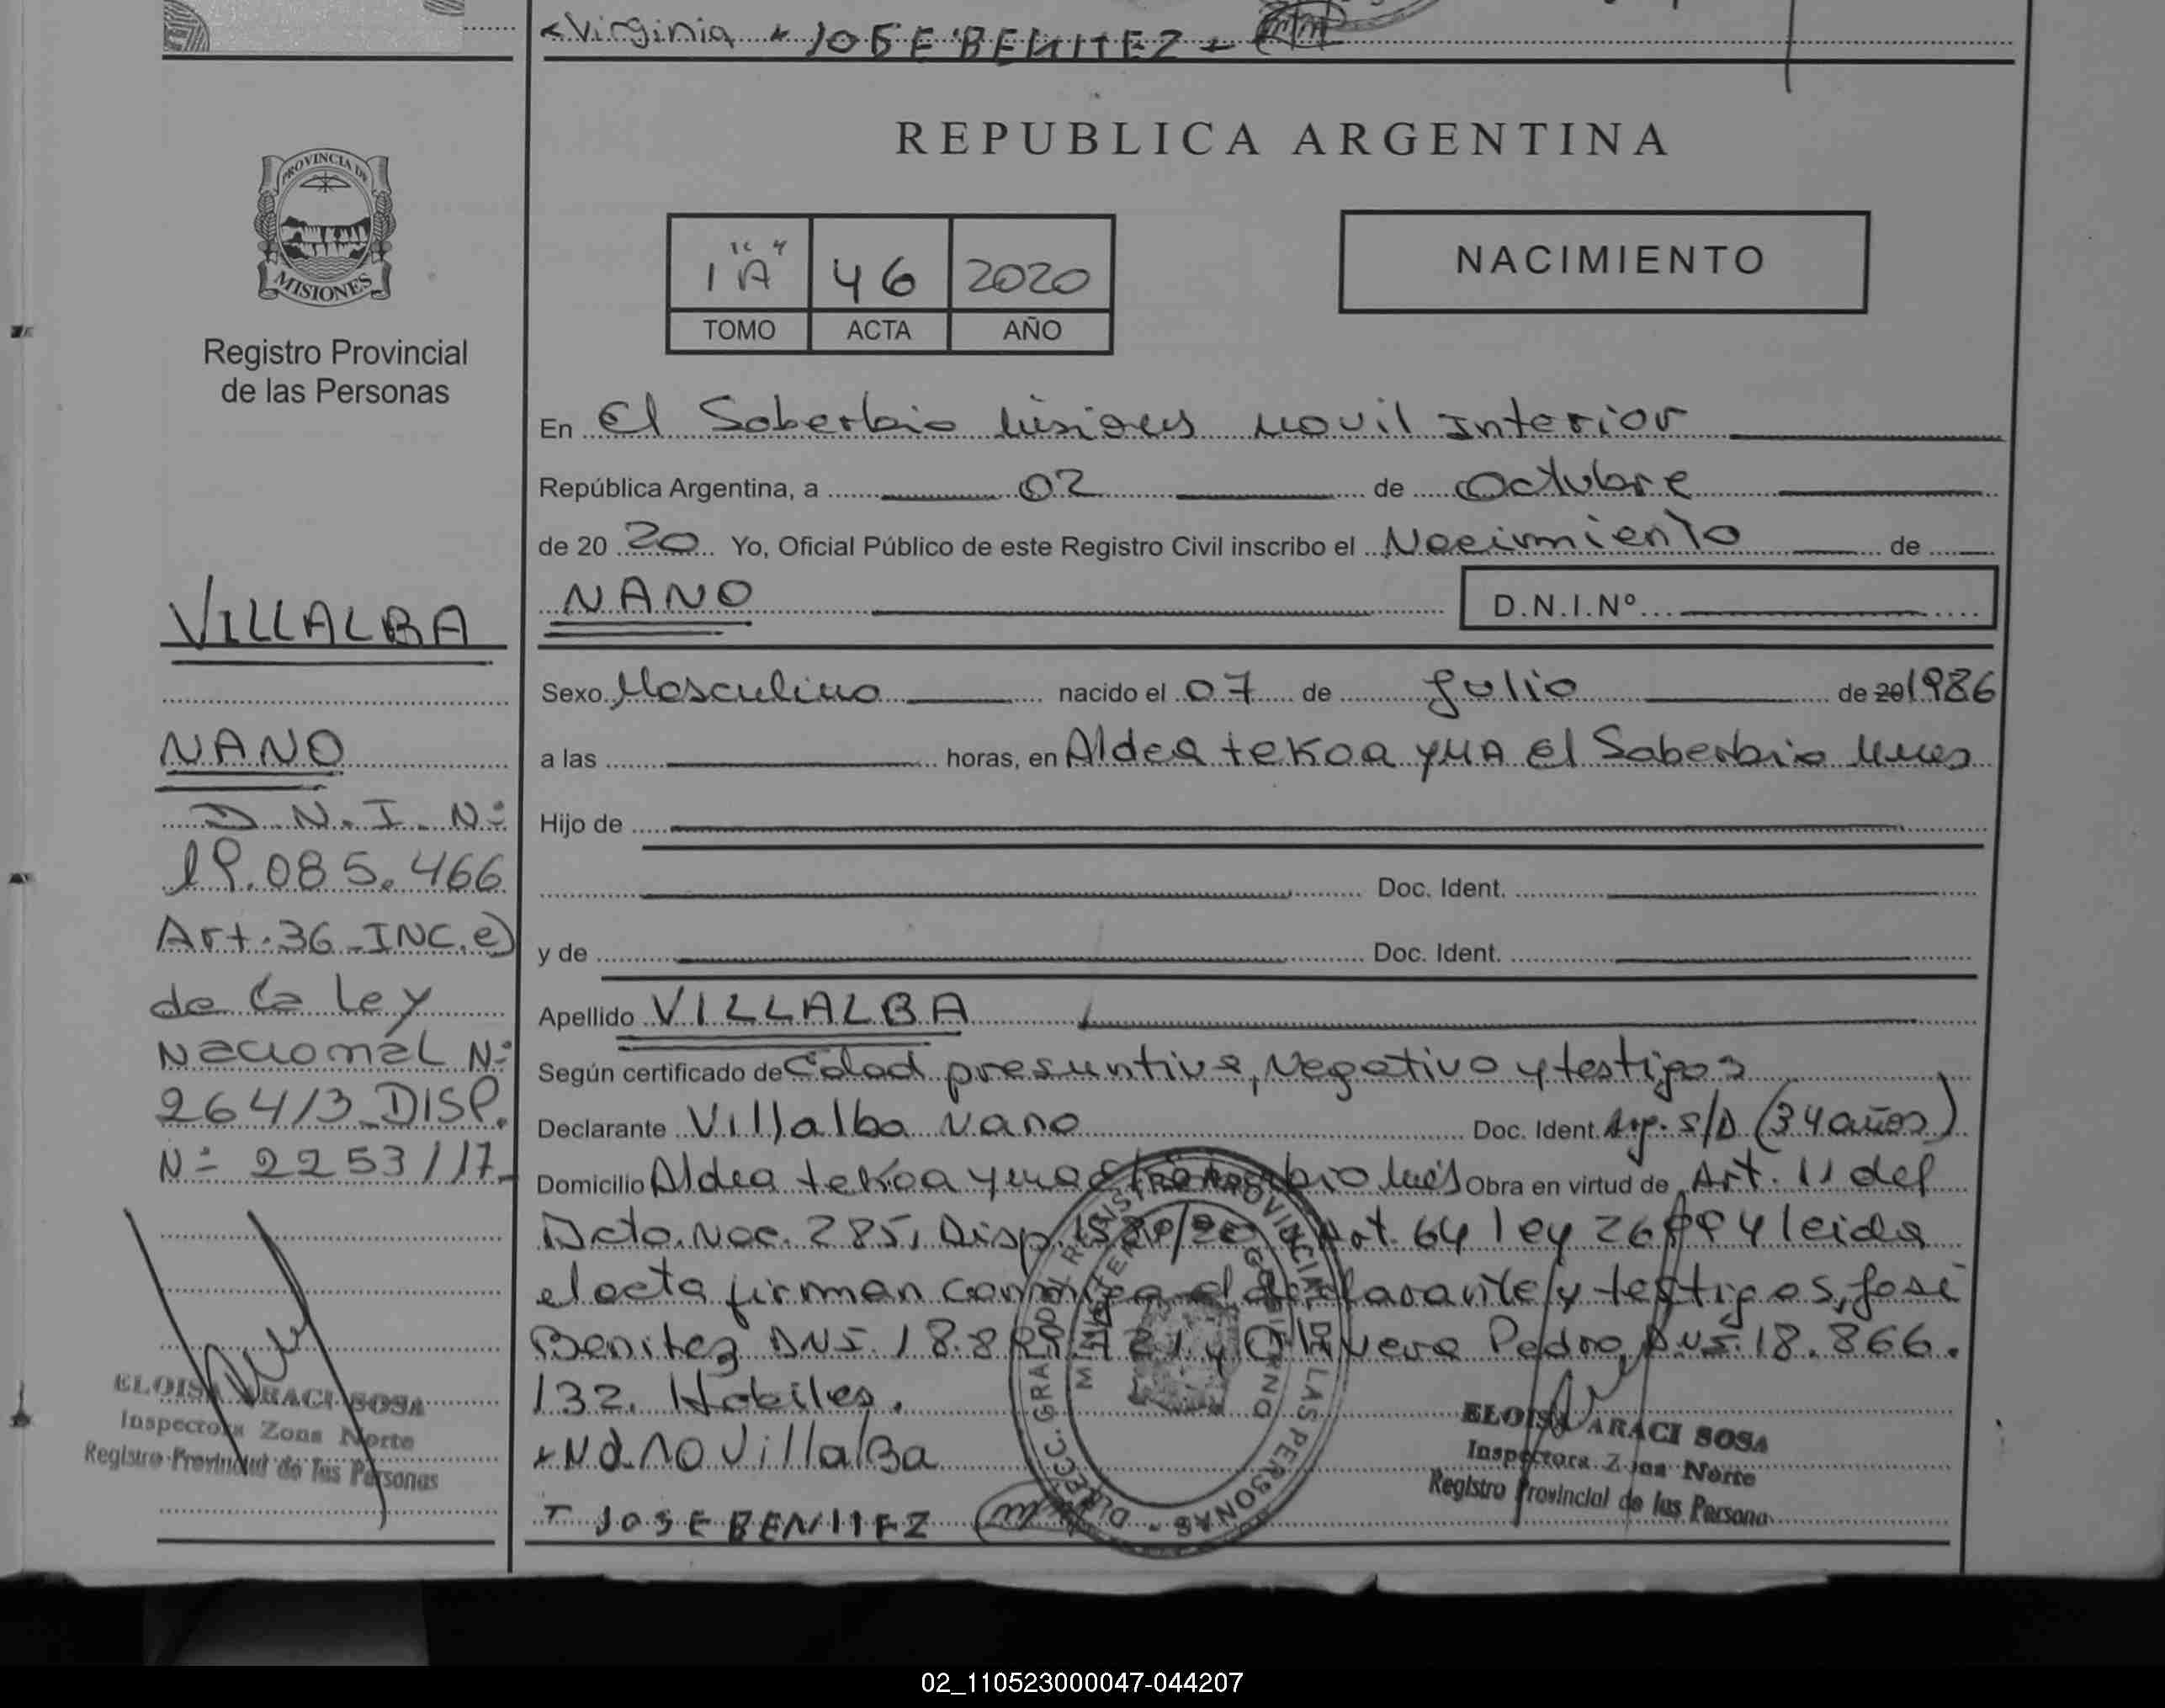 Virginia JOSE BENITEZ
REPUBLICA ARGENTINA
PROVINCIA DE
MISIONES
Registro Provincial
de las Personas
1 "A" 46 2020
TOMO ACTA AÑO
NACIMIENTO
En El Soberbio Misiones Movil Interior
República Argentina, a 02 de Octubre
de 20 20 Yo, Oficial Público de este Registro Civil inscribo el Nacimiento de
NANO
D.N.I.Nº
VILLALBA
NANO
D.N.I. Nº
19.085.466
Art. 36 INC. e)
de la ley
Nacional Nº
26413 DISP.
Nº 2253/17
ELOISA ARACI SOSA
Inspectora Zona Norte
Registro Provincial de las Personas
Sexo Masculino nacido el 07 de Julio de 20 1986
a las horas, en Aldea teKoa yMA El Soberbio Mnes
Hijo de
Doc. Ident.
y de Doc. Ident.
Apellido VILLALBA
Según certificado de Edad presuntiva, Negativo y testigos
Declarante Villalba Nano Doc. Ident. Arg. S/D (34 años)
Domicilio Aldea teKoa yma Obra en virtud de Art. 11 del
Dcto. Nac. 285, Disp. Art. 64 ley leida
el acta firman conmigo el declarante y testigos, José
Benitez DNI. y Olivera Pedro, DNI. 18.866.
132. Habiles.
Nano VillalBa
JOSE BENITEZ
DIRECC. GRAL. DEL REGISTRO PROVINCIAL DE LAS PERSONAS
MINISTERIO DE GOBIERNO
ELOISA ARACI SOSA
Inspectora Zona Norte
Registro Provincial de las Persona
02_110523000047-044207